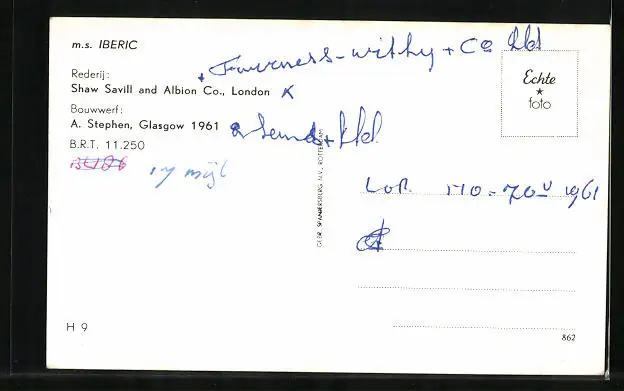 m.s. IBERIC
Furness-withy + Co Ltd
Rederij:
Shaw Savill and Albion Co., London
Bouwwerf:
A. Stephen, Glasgow 1961
B.R.T. 11.250
17 mijl
Echte
★
foto
GEBR. SPANJERSBERG N.V., ROTTERDAM
1961
H 9
862